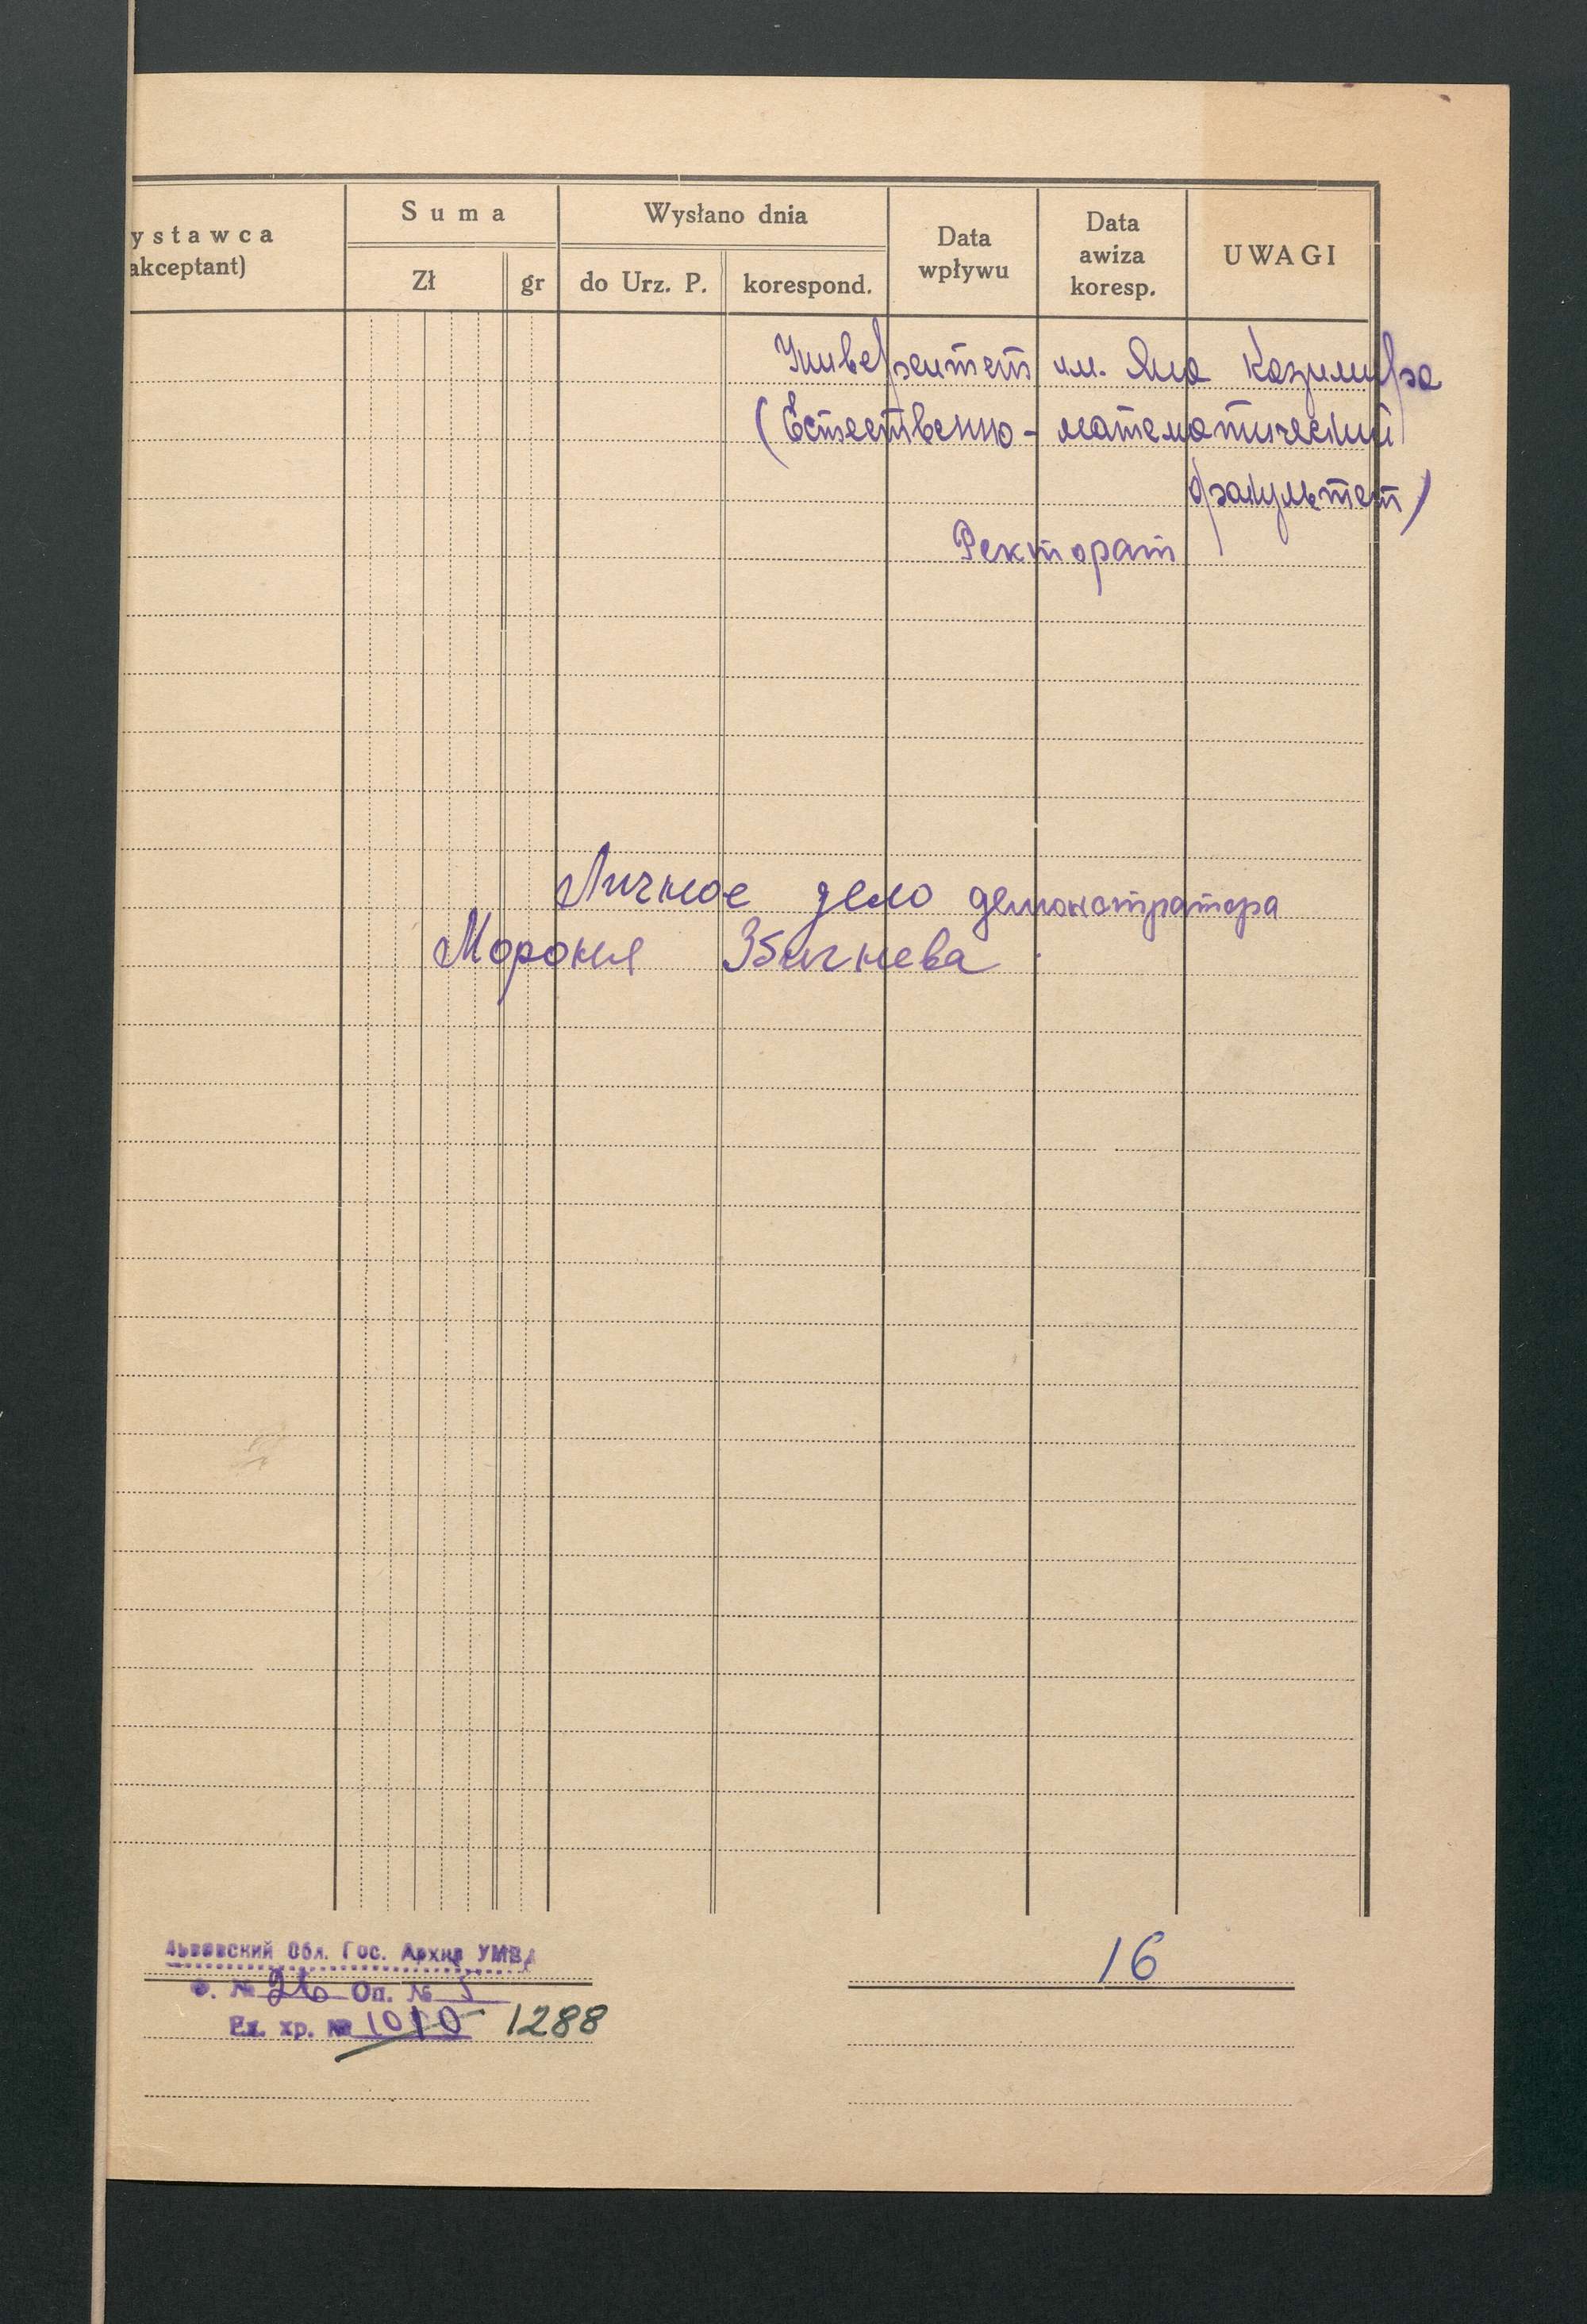 ystawca
akceptant)
Suma
Zł
gr
Wysłano dnia
do Urz. P.
korespond.
Data
wpływu
Data
awiza
koresp.
UWAGI
Университет им. Яна Казимира
(Естественно-математический
факультет)
Ректорат
Личное дело демонстратора
Мороня Збигнева
Львовский Обл. Гос. Архив УМВД
Ф. № 26 Оп. № 5
Ед. хр. № 1010 1288
16